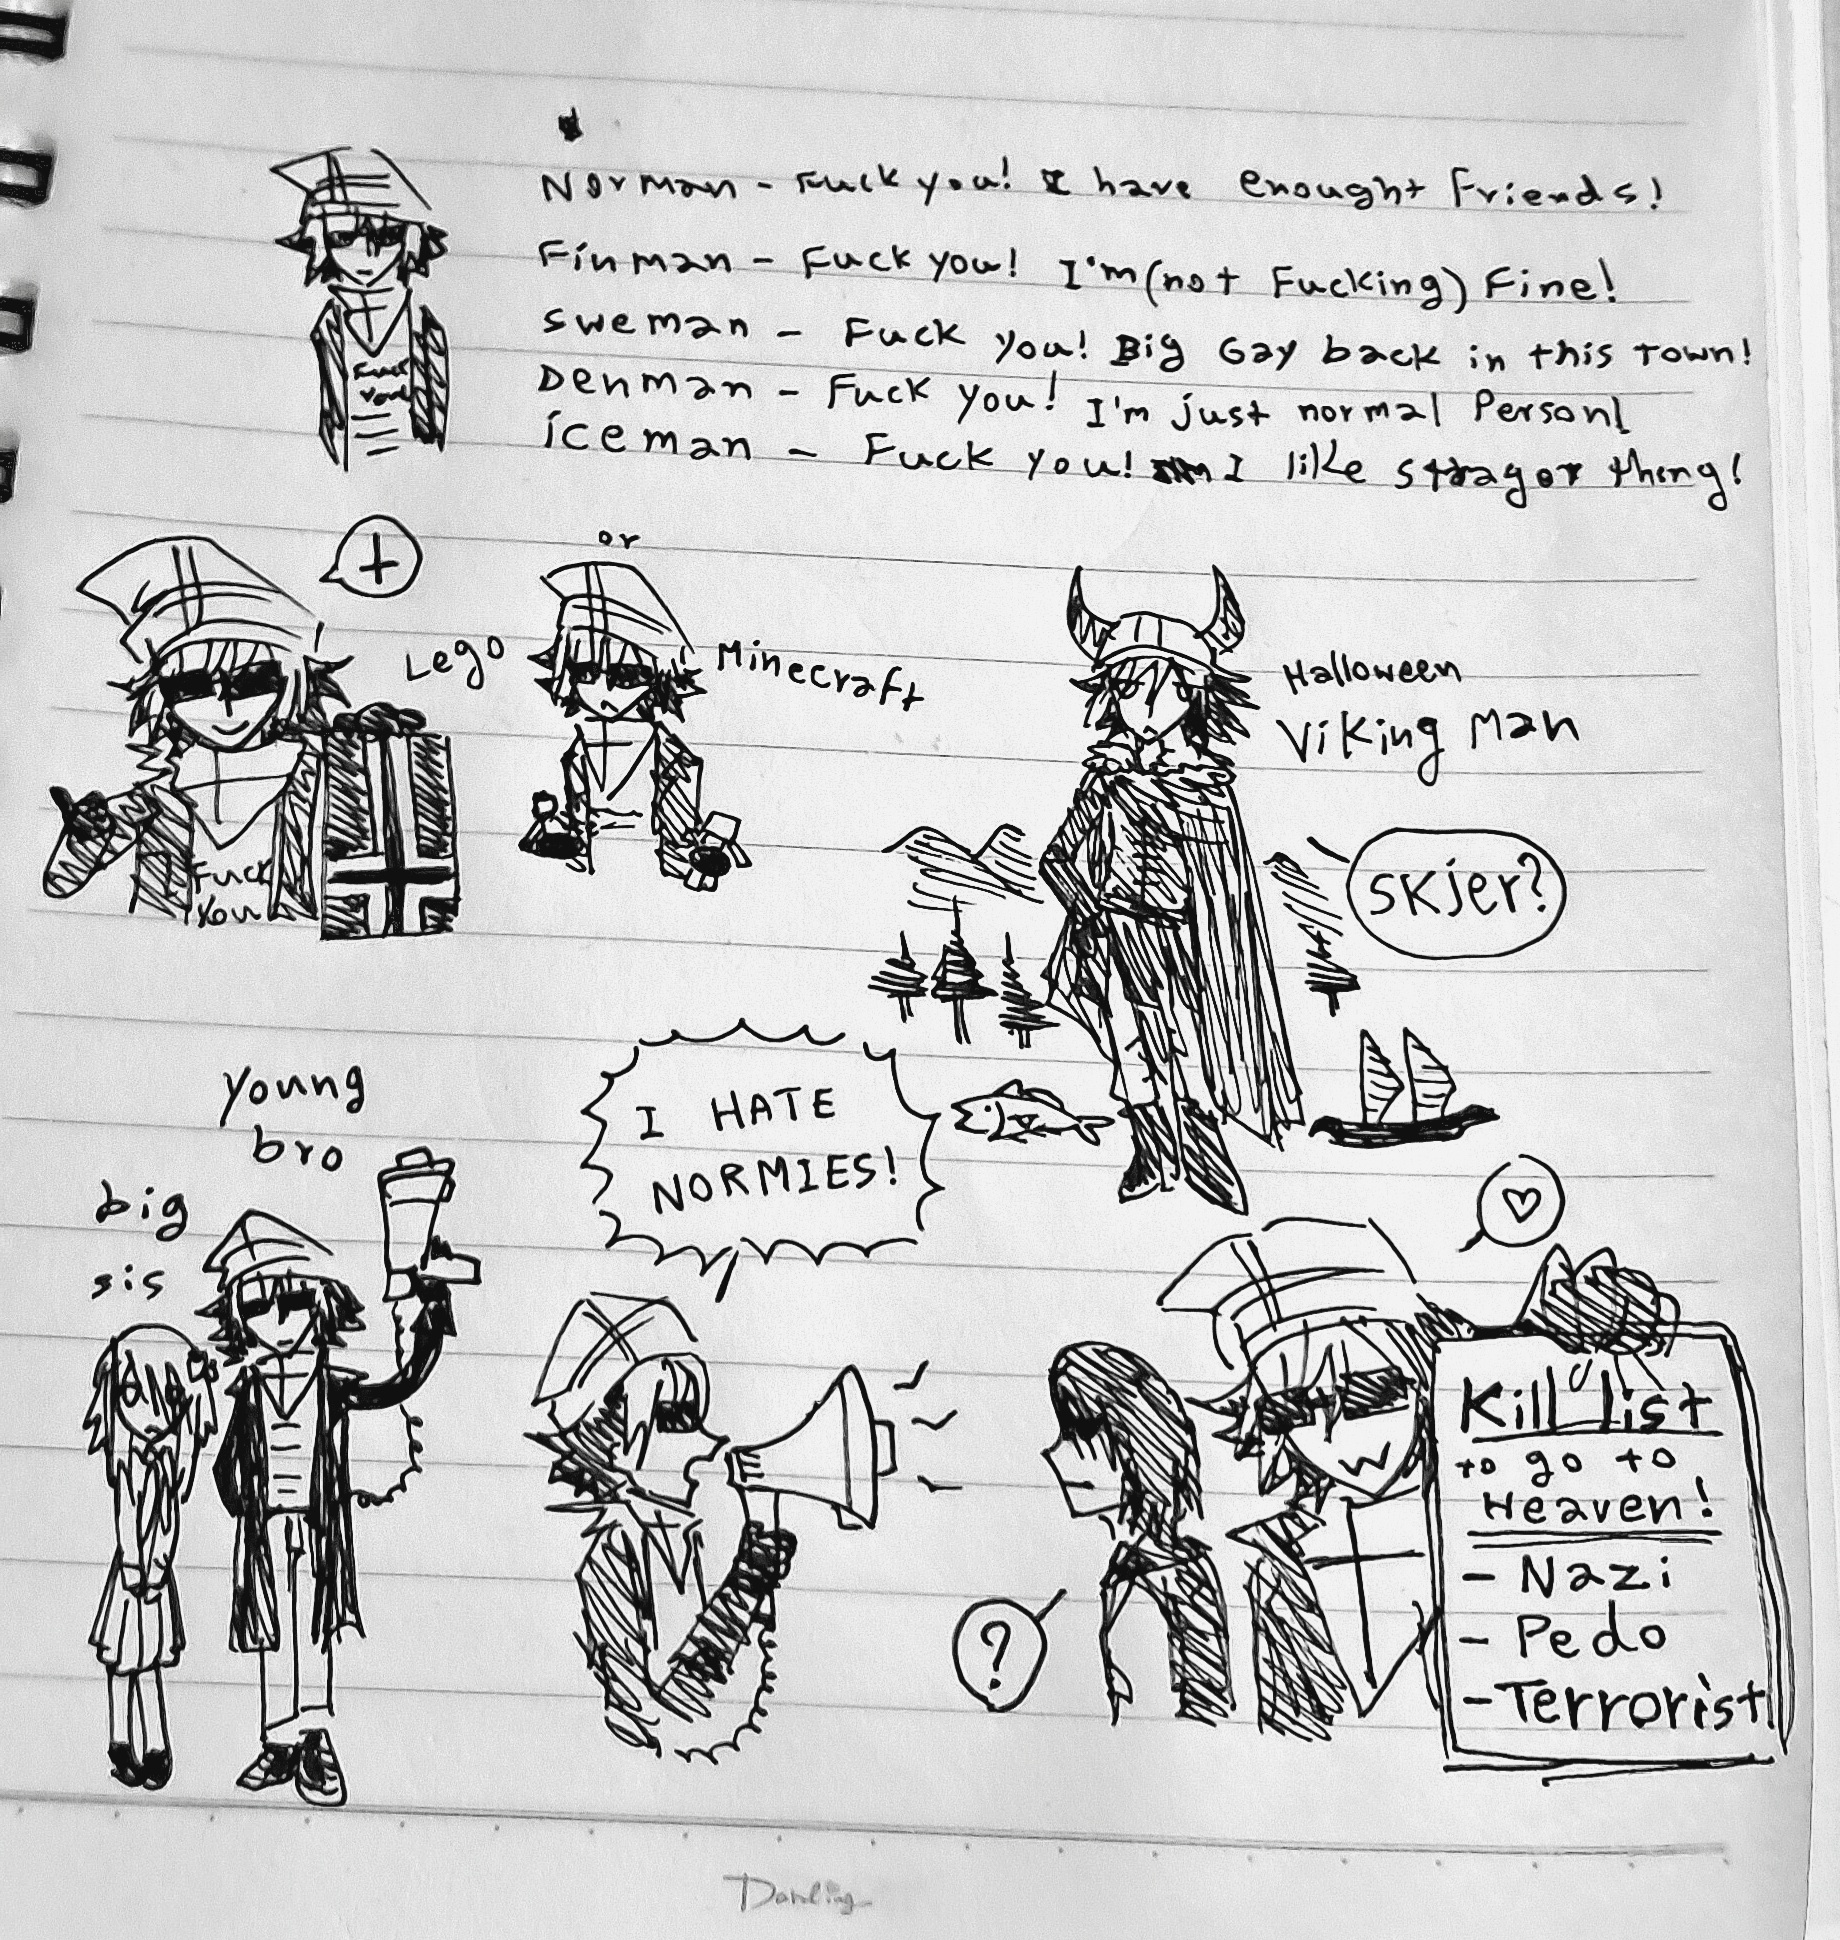 Norman - Fuck you! I have enought Friends!
Finman - Fuck you! I'm (not Fucking) Fine!
sweman - Fuck you! Big Gay back in this town!
Denman - Fuck you! I'm just normal Person!
iceman - Fuck you! I like stragor thing!
Fuck
You
or
Lego
Minecraft
Halloween
Viking Man
Fuck
You
SKjer?
young
bro
big
sis
I HATE
NORMIES!
Kill list
to go to
Heaven!
- Nazi
- Pedo
- Terrorist